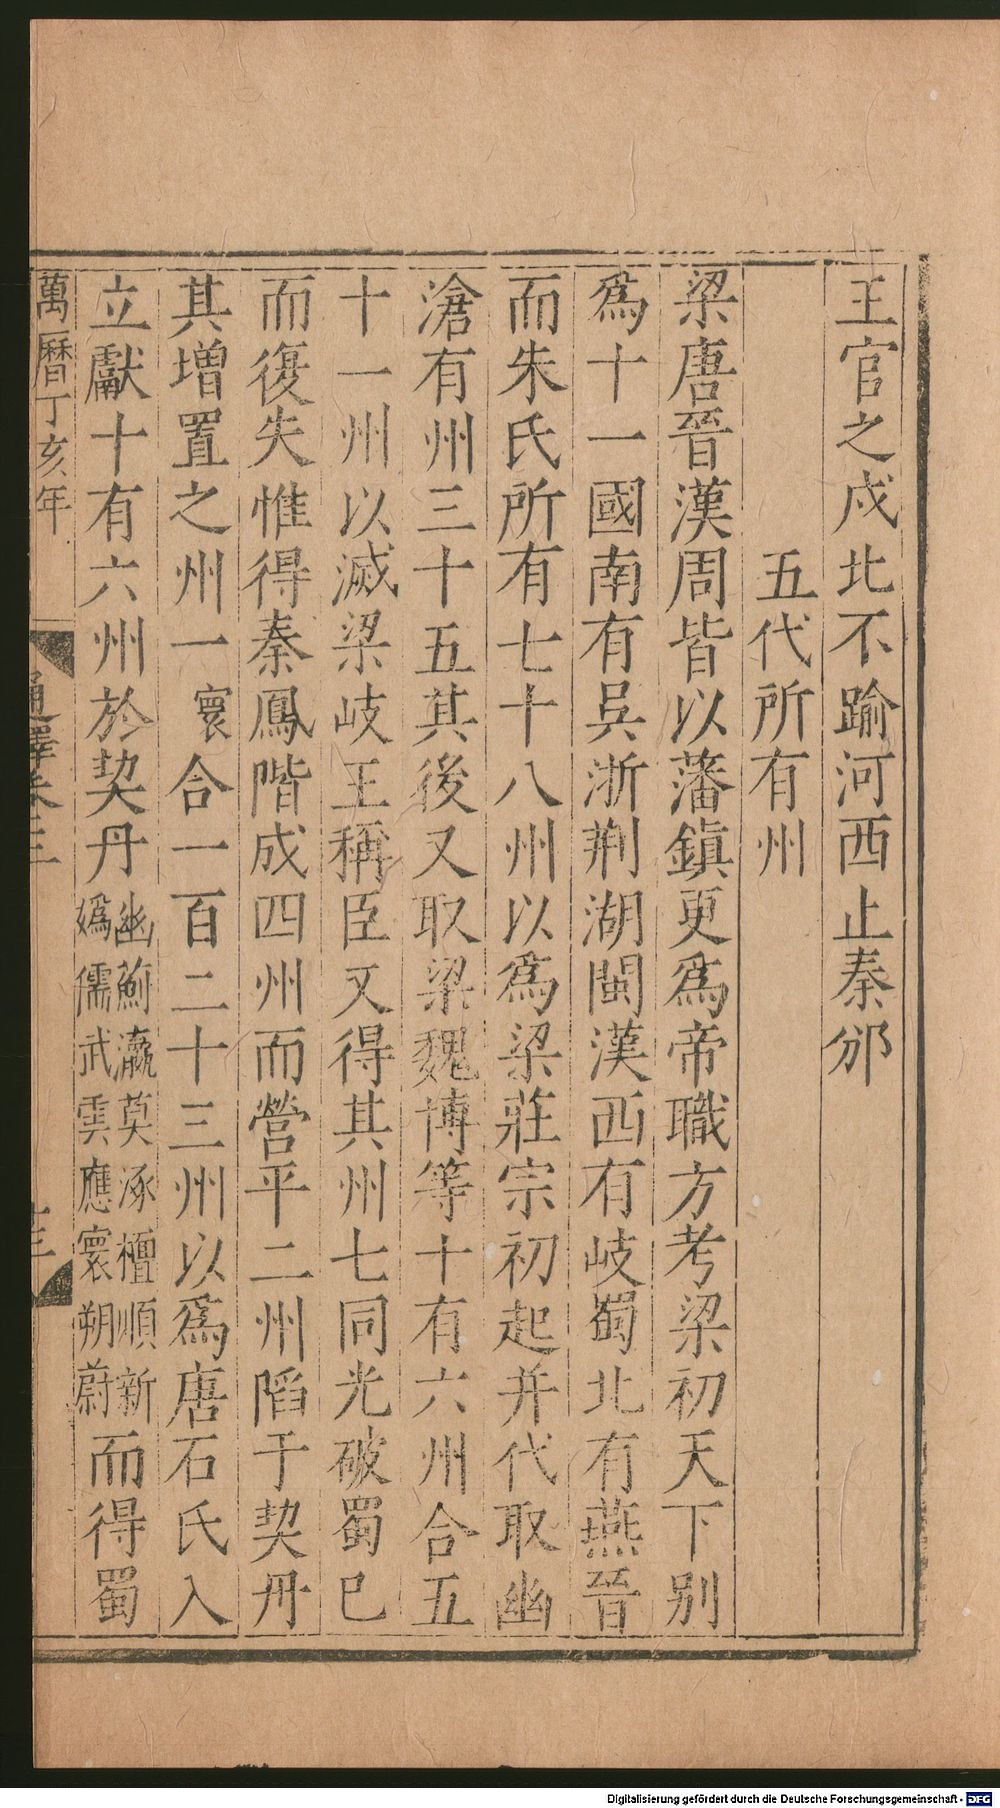 王官之戍北不踰河西止秦邠
五代所有州
梁唐晉漢周皆以藩鎮更爲帝職方考梁初天下別
爲十一國南有吳浙荆湖閩漢西有岐蜀北有燕晉
而朱氏所有七十八州以爲梁莊宗初起并代取幽
滄有州三十五其後又取梁魏博等十有六州合五
十一州以滅梁岐王稱臣又得其州七同光破蜀已
而復失惟得秦鳳階成四州而營平二州陷于契丹
其增置之州一寰合一百二十三州以爲唐石氏入
立獻十有六州於契丹幽薊瀛莫涿檀順新媯儒武雲應寰朔蔚而得蜀
萬曆丁亥年
通釋卷三
十三
Digitalisierung gefördert durch die Deutsche Forschungsgemeinschaft - DFG